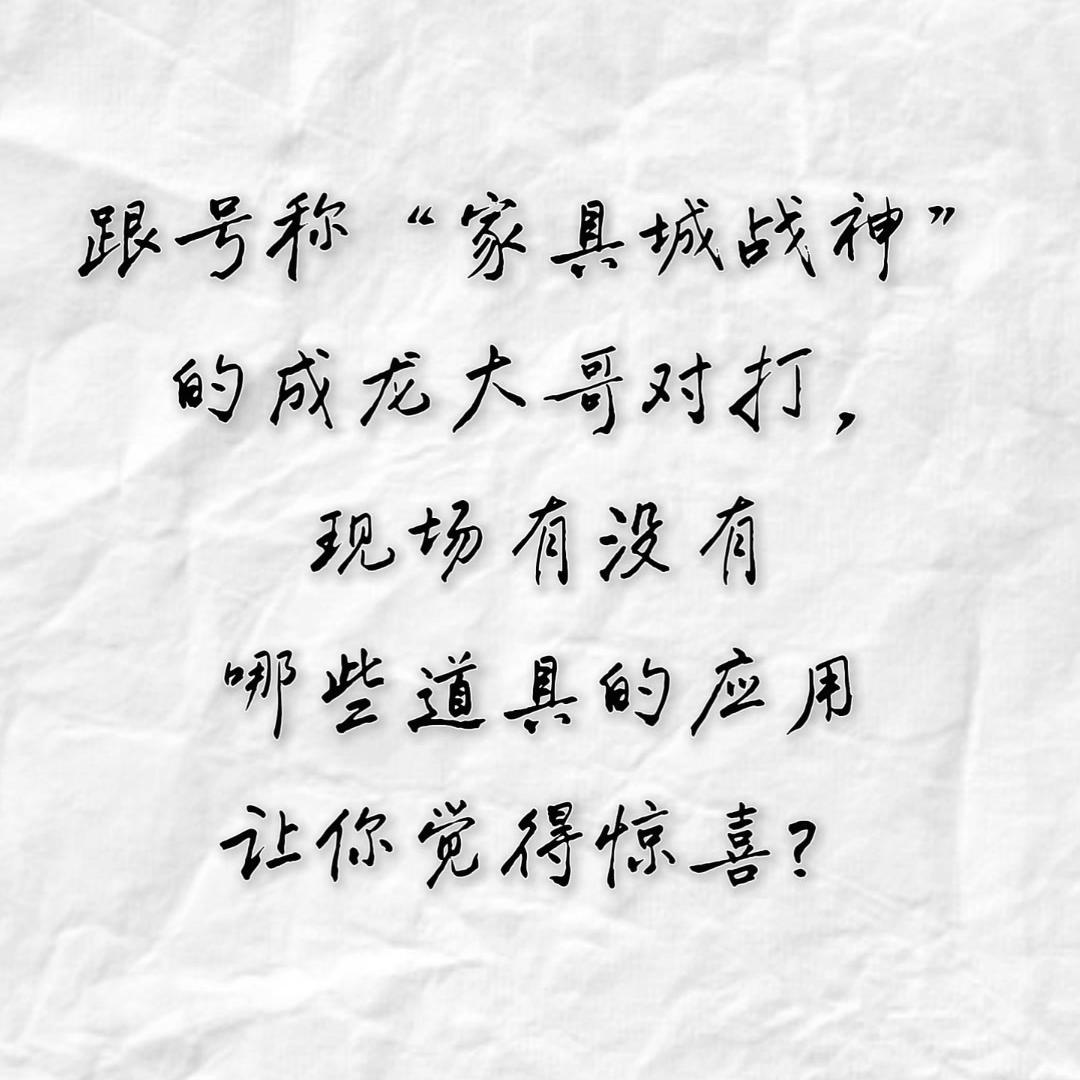 跟号称“家具城战神”
的成龙大哥对打，
现场有没有
哪些道具的应用
让你觉得惊喜？